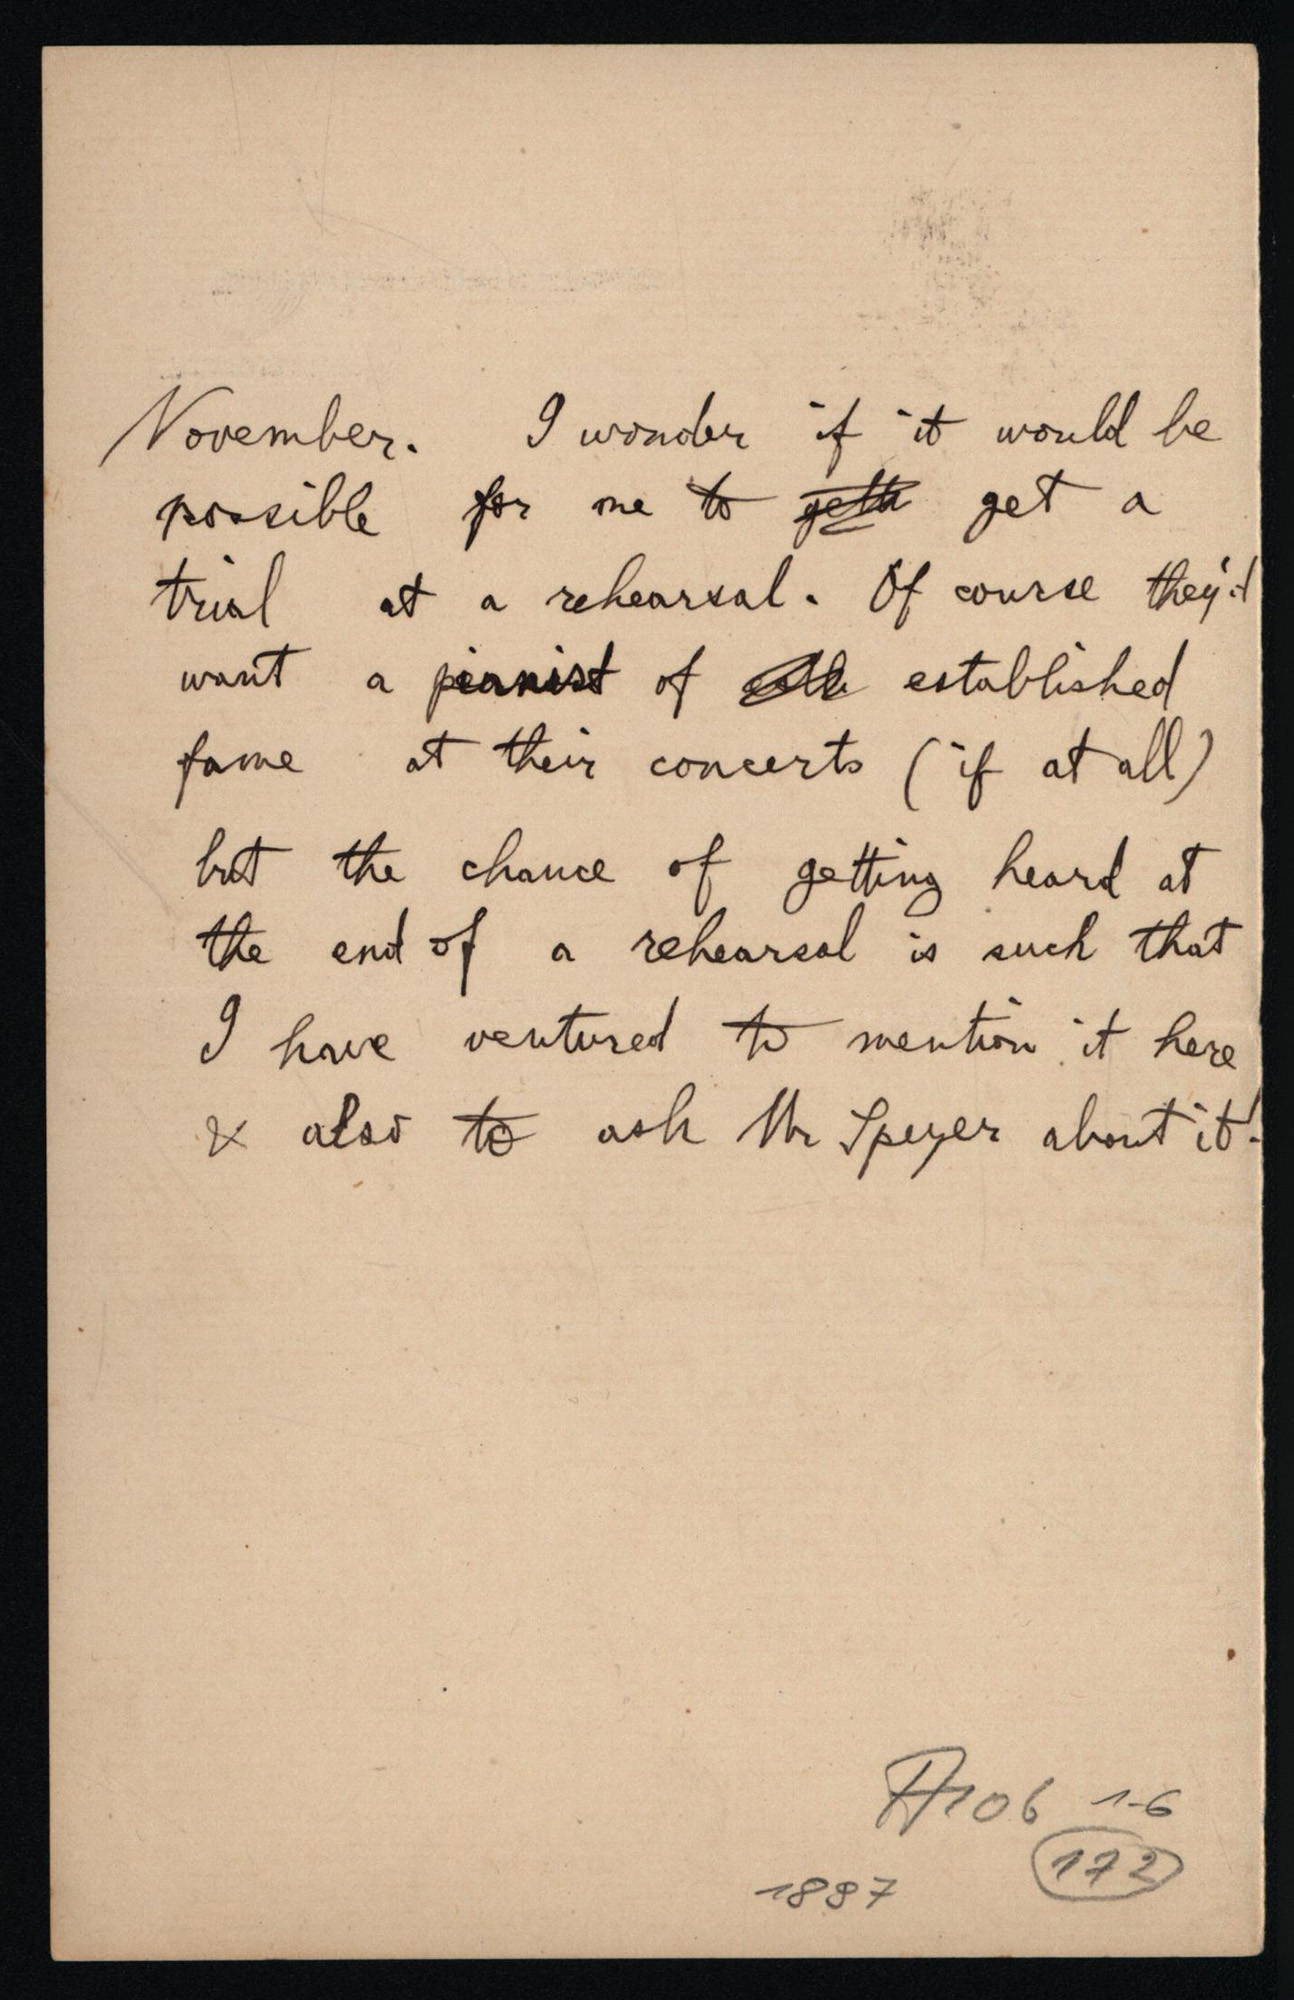 November. I wonder if it would be
possible for me to get a
trial at a rehearsal. Of course they'd
want a pianist of established
fame at their concerts (if at all)
but the chance of getting heard at
the end of a rehearsal is such that
I have ventured to mention it here
& also to ask Mr Speyer about it.
A106 1-6
172
1887